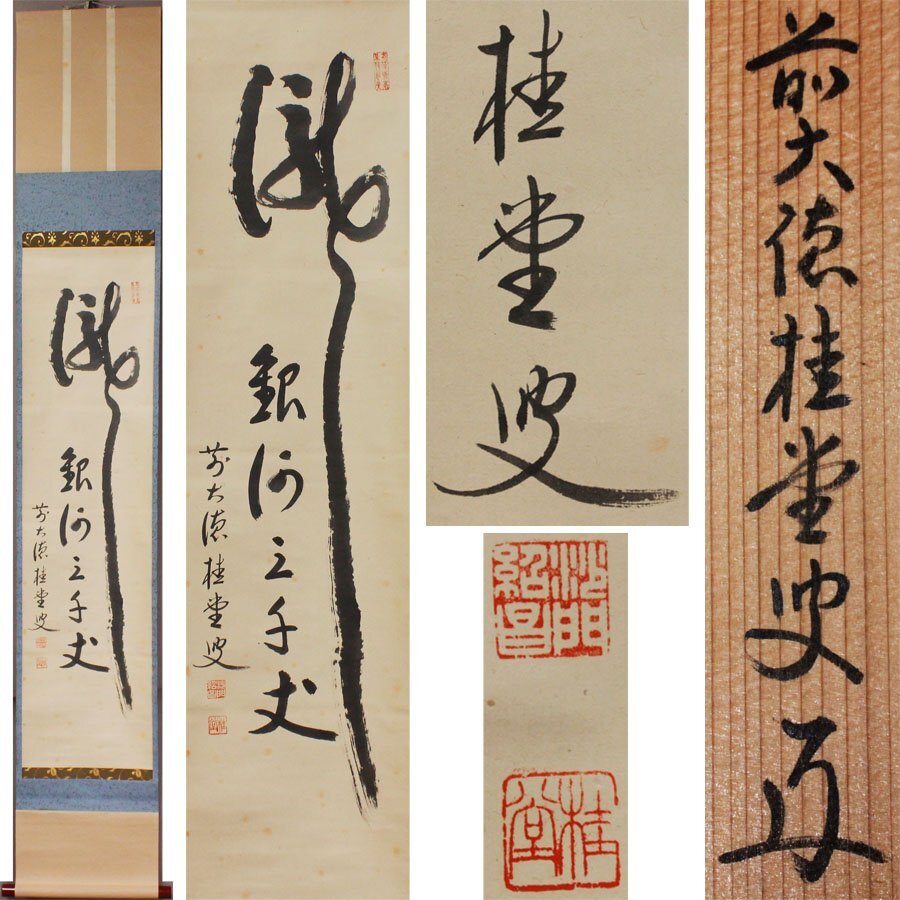 瀧
銀河三千丈
前大徳桂堂叟
瀧
銀河三千丈
前大徳桂堂叟
桂堂叟
沙門
紹昌
桂堂
前大徳桂堂叟